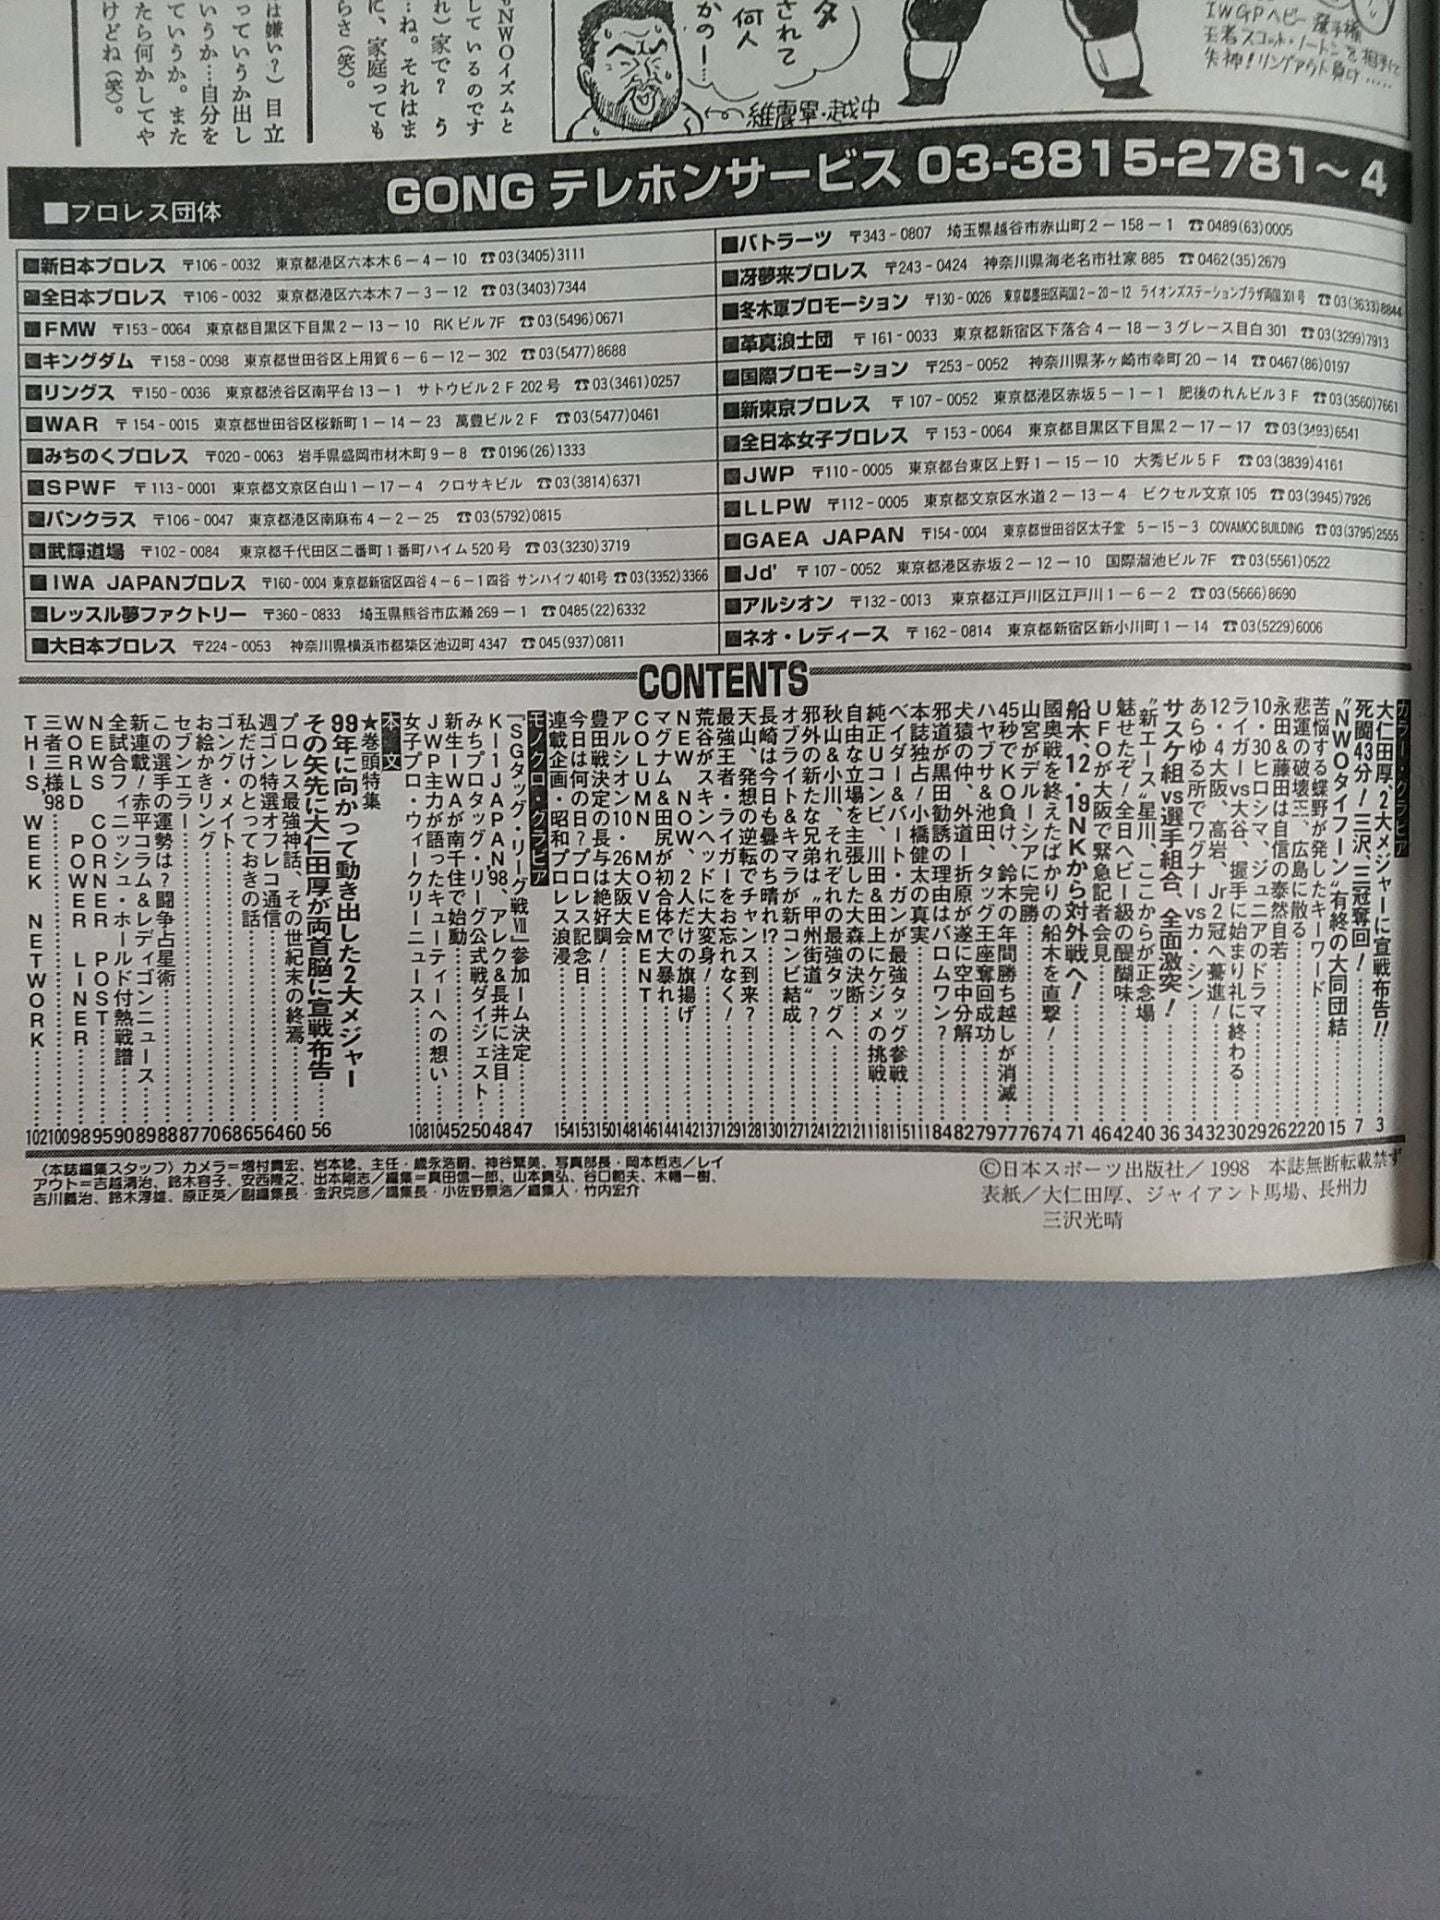 は嫌い？）目立
っていうか出し
いうか…自分を
ていうか。また
たら何かしてや
けどね（笑）。
NWOイズムと
しているのです
れ）家で？　う
…ね。それはま
に、家庭っても
らさ（笑）。
されて
何人
かのー…
維震軍・越中
IWGPヘビー選手権
王者スコット・ノートンを相手に
失神！リングアウト負け……
GONG テレホンサービス 03-3815-2781～4
■プロレス団体
■新日本プロレス　〒106-0032　東京都港区六本木6-4-10　☎03(3405)3111
■全日本プロレス　〒106-0032　東京都港区六本木7-3-12　☎03(3403)7344
■FMW　〒153-0064　東京都目黒区下目黒2-13-10　RKビル7F　☎03(5496)0671
■キングダム　〒158-0098　東京都世田谷区上用賀6-6-12-302　☎03(5477)8688
■リングス　〒150-0036　東京都渋谷区南平台13-1　サトウビル2F 202号　☎03(3461)0257
■WAR　〒154-0015　東京都世田谷区桜新町1-14-23　萬豊ビル2F　☎03(5477)0461
■みちのくプロレス　〒020-0063　岩手県盛岡市材木町9-8　☎0196(26)1333
■SPWF　〒113-0001　東京都文京区白山1-17-4　クロサキビル　☎03(3814)6371
■パンクラス　〒106-0047　東京都港区南麻布4-2-25　☎03(5792)0815
■武輝道場　〒102-0084　東京都千代田区二番町1番町ハイム520号　☎03(3230)3719
■IWA JAPANプロレス　〒160-0004 東京都新宿区四谷4-6-1四谷 サンハイツ401号 ☎03(3352)3366
■レッスル夢ファクトリー　〒360-0833　埼玉県熊谷市広瀬269-1　☎0485(22)6332
■大日本プロレス　〒224-0053　神奈川県横浜市都築区池辺町4347　☎045(937)0811
■バトラーツ　〒343-0807　埼玉県越谷市赤山町2-158-1　☎0489(63)0005
■冴夢来プロレス　〒243-0424　神奈川県海老名市社家885　☎0462(35)2679
■冬木軍プロモーション　〒130-0026　東京都墨田区両国2-20-12　ライオンズステーションプラザ両国301号　☎03(3633)8844
■革真浪士団　〒161-0033　東京都新宿区下落合4-18-3グレース目白301　☎03(3299)7913
■国際プロモーション　〒253-0052　神奈川県茅ヶ崎市幸町20-14　☎0467(86)0197
■新東京プロレス　〒107-0052　東京都港区赤坂5-1-1　肥後のれんビル3F　☎03(3560)7661
■全日本女子プロレス　〒153-0064　東京都目黒区下目黒2-17-17　☎03(3493)6541
■JWP　〒110-0005　東京都台東区上野1-15-10　大秀ビル5F　☎03(3839)4161
■LLPW　〒112-0005　東京都文京区水道2-13-4　ビクセル文京105　☎03(3945)7926
■GAEA JAPAN　〒154-0004　東京都世田谷区太子堂　5-15-3　COVAMOC BUILDING　☎03(3795)2555
■Jd'　〒107-0052　東京都港区赤坂2-12-10　国際溜池ビル7F　☎03(5561)0522
■アルシオン　〒132-0013　東京都江戸川区江戸川1-6-2　☎03(5666)8690
■ネオ・レディース　〒162-0814　東京都新宿区新小川町1-14　☎03(5229)6006
CONTENTS
カラー・グラビア
大仁田厚、2大メジャーに宣戦布告!!……3
死闘43分！三沢、三冠奪回！……7
“NWOタイフーン”有終の大同団結……15
苦悩する蝶野が発したキーワード……20
悲運の破壊王、広島に散る……22
永田&藤田は自信の泰然自若……26
10・30ヒロシマ、ジュニアのドラマ……29
ライガーvs大谷、握手に始まり礼に終わる……30
12・4大阪、高岩、Jr2冠へ驀進！……32
あらゆる所でワグナーvsカ・シン……34
サスケ組vs選手組合、全面激突！……36
“新エース”星川、ここからが正念場……40
魅せたぞ！全日ヘビー級の醍醐味……42
UFOが大阪で緊急記者会見……46
船木、12・19NKから対外戦へ！……71
國奥戦を終えたばかりの船木を直撃！……74
山宮がデルーシアに完勝……76
45秒でKO負け、鈴木の年間勝ち越しが消滅……77
ハヤブサ&池田、タッグ王座奪回成功……79
犬猿の仲、外道－折原が遂に空中分解……82
邪道が黒田勧誘の理由はバロムワン？……84
本誌独占！小橋健太の真実……111
ベイダー&バート・ガンが最強タッグ参戦……115
純正Uコンビ、川田&田上にケジメの挑戦……118
自由な立場を主張した大森の決断……121
秋山&小川、それぞれの最強タッグへ……122
邪外の新たな兄弟は“甲州街道”？……124
オブライト&キマラが新コンビ結成……127
長崎は今日も曇のち晴れ!?……130
天山、発想の逆転でチャンス到来？……128
最強王者・ライガーをお忘れなく！……129
荒谷がスキンヘッドに大変身！……137
NEW NOW、2人だけの旗揚げ……142
マグナム&田尻が初合体で大暴れ……144
COLUMN MOVEMENT……146
アルシオン10・26大阪大会……148
豊田戦決定の長与は絶好調！……150
今日は何の日？プロレス記念日……153
連載企画・昭和プロレス浪漫……154
モノクロ・グラビア
「SGタッグ・リーグ戦Ⅶ」参加チーム決定……47
K-1 JAPAN'98、アレク&長井に注目……48
みちプロタッグ・リーグ公式戦ダイジェスト……50
新生IWAが南千住で始動……52
JWP主力が語ったキューティーへの想い……104
女子プロ・ウィークリーニュース……108
本文
★巻頭特集
99年に向かって動き出した2大メジャー
その矢先に大仁田厚が両首脳に宣戦布告……56
プロレス最強神話、その世紀末の終焉……60
週ゴン特選オフレコ通信……64
私だけのとっておきの話……65
ゴング・メイト……68
お絵かきリング……70
セブンエラー……87
この選手の運勢は？闘争占星術……88
新連載！赤平コラム&レディゴンニュース……89
全試合フィニッシュ・ホールド付熱戦譜……90
NEWS CORNER POST……95
WORLD POWER LINER……98
三者三様'98……100
THIS WEEK NETWORK……102
〈本誌編集スタッフ〉カメラ＝増村貴宏、岩本稔、主任・歳永浩嗣、神谷繁美、写真部長・岡本哲志／レイ
アウト＝吉越清治、鈴木容子、安西隆之、出本剛志／編集＝真田信一郎、山本貴弘、谷口範夫、木幡一樹、
吉川義治、鈴木淳雄、原正英／副編集長・金沢克彦／編集長・小佐野景浩／編集人・竹内宏介
©日本スポーツ出版社／1998　本誌無断転載禁ず
表紙／大仁田厚、ジャイアント馬場、長州力
三沢光晴